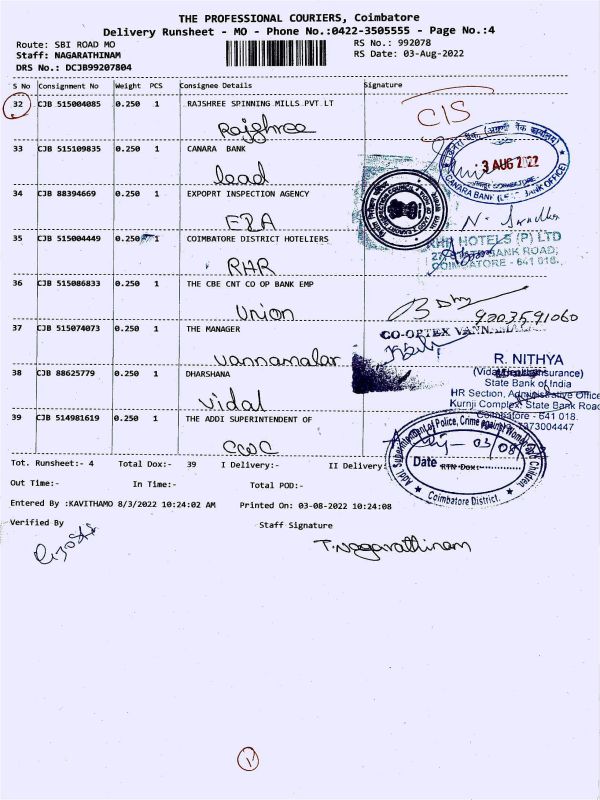 THE PROFESSIONAL COURIERS, Coimbatore
Delivery Runsheet - MO - Phone No.:0422-3505555 - Page No.:4
Route: SBI ROAD MO
Staff: NAGARATHINAM
DRS No.: DCJB99207804
RS No.: 992078
RS Date: 03-Aug-2022
S No Consignment No Weight PCS Consignee Details Signature
32 CJB 515004085 0.250 1 .RAJSHREE SPINNING.MILLS.PVT.LT
Rajshree
CIS
33 CJB 515109835 0.250 1 CANARA BANK
lead
3 AUG 2022
34 CJB 88394669 0.250 1 EXPOPRT INSPECTION AGENCY
EIA
35 CJB 515004449 0.250 1 COIMBATORE DISTRICT HOTELIERS
RHR
RHR HOTELS (P) LTD
BANK ROAD,
COIMBATORE - 641 018.
36 CJB 515086833 0.250 1 THE CBE CNT CO OP BANK EMP
Union
9203591060
37 CJB 515074073 0.250 1 THE MANAGER
Vannamalar
CO-OPTEX
38 CJB 88625779 0.250 1 DHARSHANA
Vidal
R. NITHYA
State Bank of India
HR Section, Administrative Office
Kurnji Complex, State Bank Road
Coimbatore - 641 018.
39 CJB 514981619 0.250 1 THE ADDI SUPERINTENDENT OF
CWC
Addl. Superintendent of Police, Crime against Women and Children.
Date
Coimbatore District.
Tot. Runsheet:- 4 Total Dox:- 39 I Delivery:- II Delivery: RTN Dox:-
Out Time:- In Time:- Total POD:-
Entered By :KAVITHAMO 8/3/2022 10:24:02 AM Printed On: 03-08-2022 10:24:08
Verified By Staff Signature
T.Nagarathinam